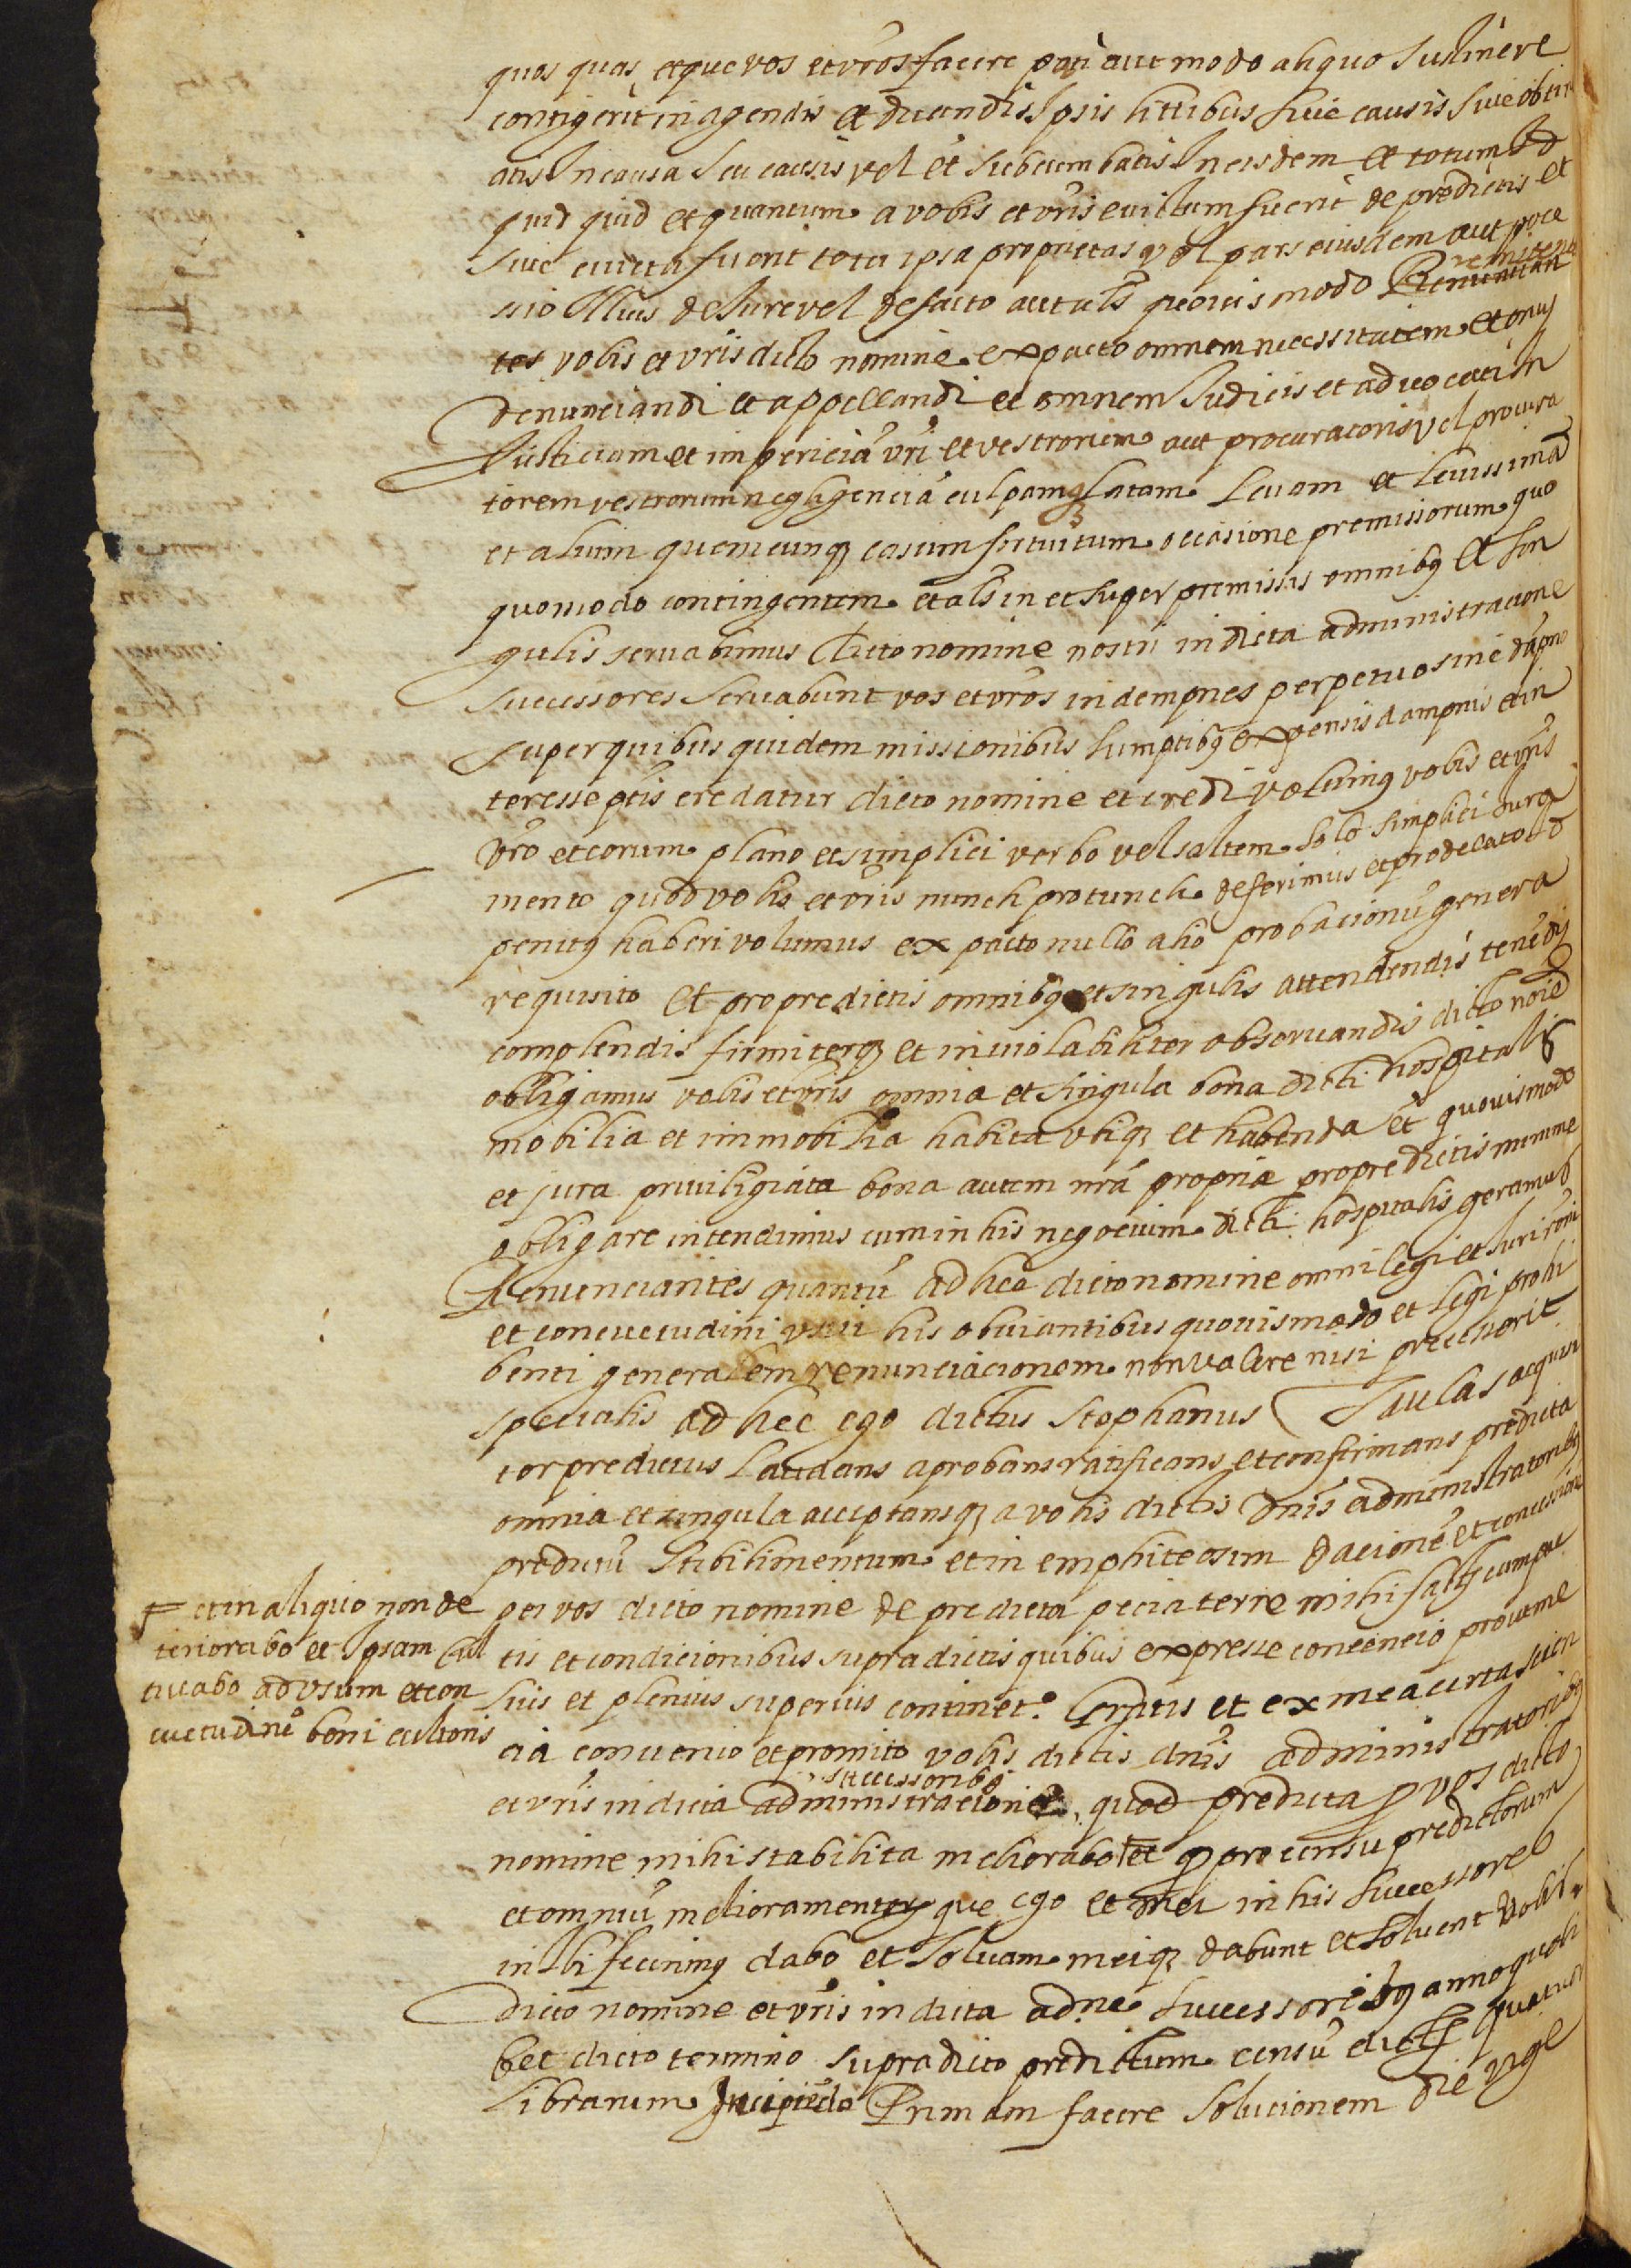 quos quas et que vos et vr̃os facere pati aut modo aliquo sustinere
contigerit in agendis et ducendis Ipsis littibus sive causis sive obtin
atis In causa seu causis vel et subcumbatis In eisdem et totum Id
quid quid et quantum a vobis et vr̃is evictum fuerit de predictis et
sive evicta fuerit tota ipsa proprietas vel pars eiusdem aut poce
remitten
ssio Illius de Jure vel de facto aut als̃ quovis modo
tes vobis et vr̃is dicto nomine ex pacto omnem necessitatem et onus
denunciandi et appellandi et omnem Judicis et advocati In
Justiciam et impericiã vr̃i et vestrorum aut procuratoris vel procura
torem vestrorum negligenciã culpamq; latam levem et levissimã
et alium quemcunq; casum fortuitum occasione premissorum quo
quomodo contingentem et als̃ in et super premissis omnibq et sin
gulis servabimus dicto nomine nostri in dicta administracione
successores servabunt vos et vr̃os indempnes perpetuo sine dãpno
super quibus quidem missionibus sumptibq expensis dampnis et in
teresse pt̃is credatur dicto nomine et credi volumq vobis et vr̃is
vr̃o et eorum plano et simplici verbo vel saltem solo simplici Jura
mento quod vobis et vr̃is nunch pro tunch deferimus et pro delato Id
penitq haberi volumus ex pacto nullo alio probacionũ genera
requisito Et pro predictis omnibq et singulis attendendis tenẽdis
complendis firmiterq; et inviolabiliter observandis dicto noĩe
obligamus vobis et vr̃is omnia et singula bona dicti hospitalis
mobilia et immobilia habita ubiq; et habenda et quovismodo
et jura priviligiata bona autem nr̃a propria pro predictis minime
obligare intendimus cum in his negocium dicti hospitalis geramus
Renunciantes quantũ ad hec dicto nomine omni legi et Juri roni
et concuetudini usui his obviantibus quovismodo et legi prohi
benti generalem renunciacionem non valere nisi precesserit
specialis ad hec ego dictus Stephanus Taulas acquisi
tor predictus laudans aprobans ratificans et confirmans predicta
omnia et singula acceptansq; a vobis dictis dnĩs administratoribq
predictũ stabilimentum et in emphiteosim dacionẽ et concessionẽ
per vos dicto nomine de predicta pecia terre mihi factis cum pac
tis et condicionibus supradictis quibus expresse concencio prout me
lius et plenius superius continet. Gratis et ex mea certa scien
cia convenio et promito vobis dictis dnĩs administratoribq
successoribq
et vr̃is in dicta administracione quod predicta p vos dicto
nomine mihi stabilita meliorabo et q pro censu predictorum
et omniũ melioramentor que ego et mei in his successores
inibi fecerimq dabo et solvam meiq; dabunt et solvent vobis
dicto nomine et vr̃is in dicta adñe successoribq anno quoli
bet dicto termino supradicto predictum censũ dictar quatuor
librarum Incipiẽdo Primam facere solutionem die vige
et in aliquo non de
teriorabo et Ipsam cul
tivabo ad usum et con
cuetudinẽ boni cultoris